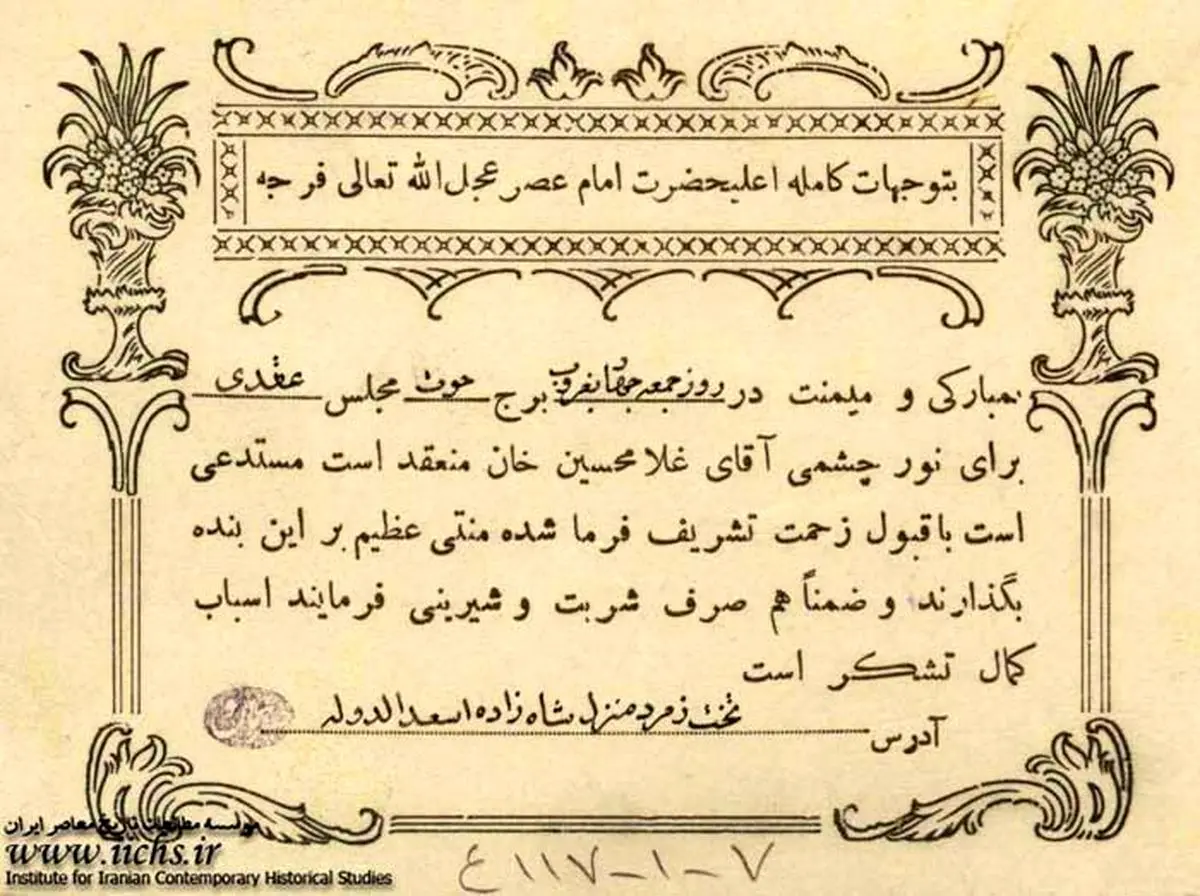 بتوجهات کامله اعلیحضرت امام عصر عجل الله تعالی فرجه
بمبارکی و میمنت در روز جمعه چهار بغروب برج حوت مجلس عقدی
برای نور چشمی آقای غلامحسین خان منعقد است مستدعی
است با قبول زحمت تشریف فرما شده منتی عظیم بر این بنده
بگذارند و ضمناً هم صرف شربت و شیرینی فرمایند اسباب
کمال تشکر است
آدرس تخت زمرد منزل شاه زاده اسعد الدوله
موسسه مطالعات تاریخ معاصر ایران
www.iichs.ir
Institute for Iranian Contemporary Historical Studies
۷-۱-۱۱۷ع